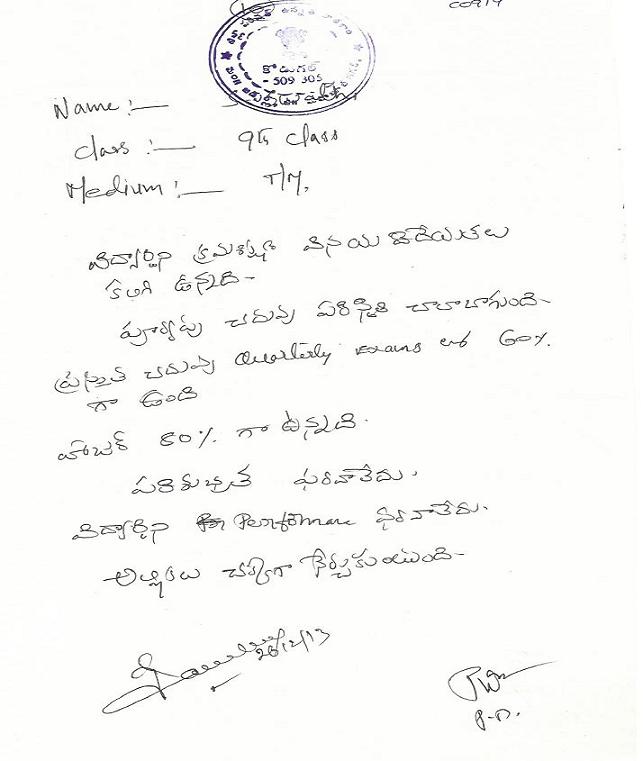 C0914
కోడుగల్
- 509 305
Name :-
class :- 9th class
Medium :- T/M.
విద్యార్థిని క్రమశిక్షణ వినయ విధేయతలు
కలిగి ఉన్నది-
పూర్వపు చదువు పరిస్థితి చాలాబాగుంది-
ప్రస్తుత చదువు Quarterly Exams లో 60%.
గా ఉంది
హాజర్ 80% గా ఉన్నది.
పరిశుభ్రత ఫరవాలేదు.
విద్యార్థిని Performanc ఫరవాలేదు.
అల్లికలు చక్కగా నేర్చుకుంటుంది-
26/12/13